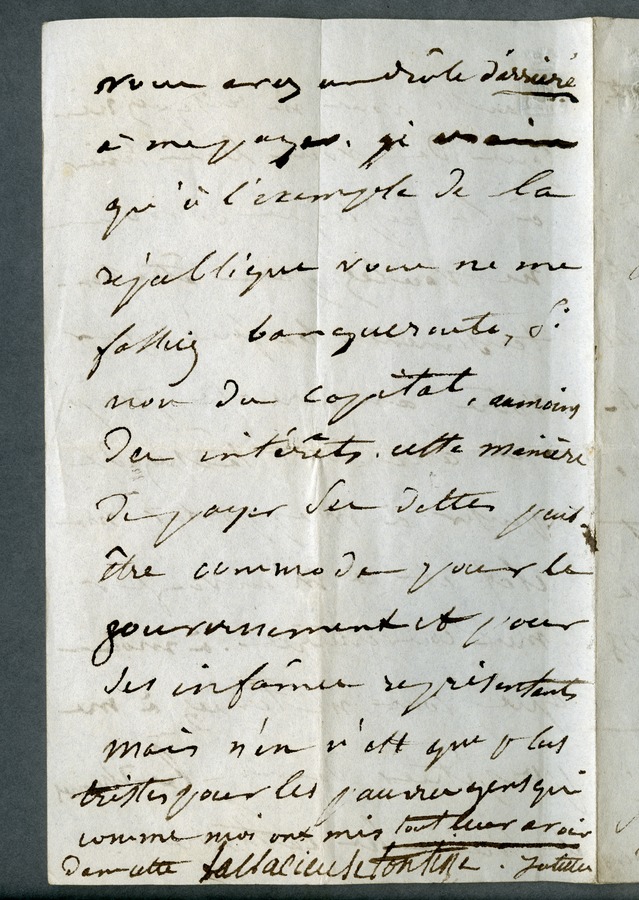 vous avez un drôle d'arriéré
à me payer. je crains
qu'à l'exemple de la
république vous ne me
fassiez banqueroute, si
non du capital, au moins
des intérêts. cette manière
de payer ses dettes peut
être commode pour le
gouvernement et pour
ses infâmes représentants
mais n'en n'est que plus
tristes pour les pauvres gens qui
comme moi ont mis tout leur avoir
dans cette fallacieuse